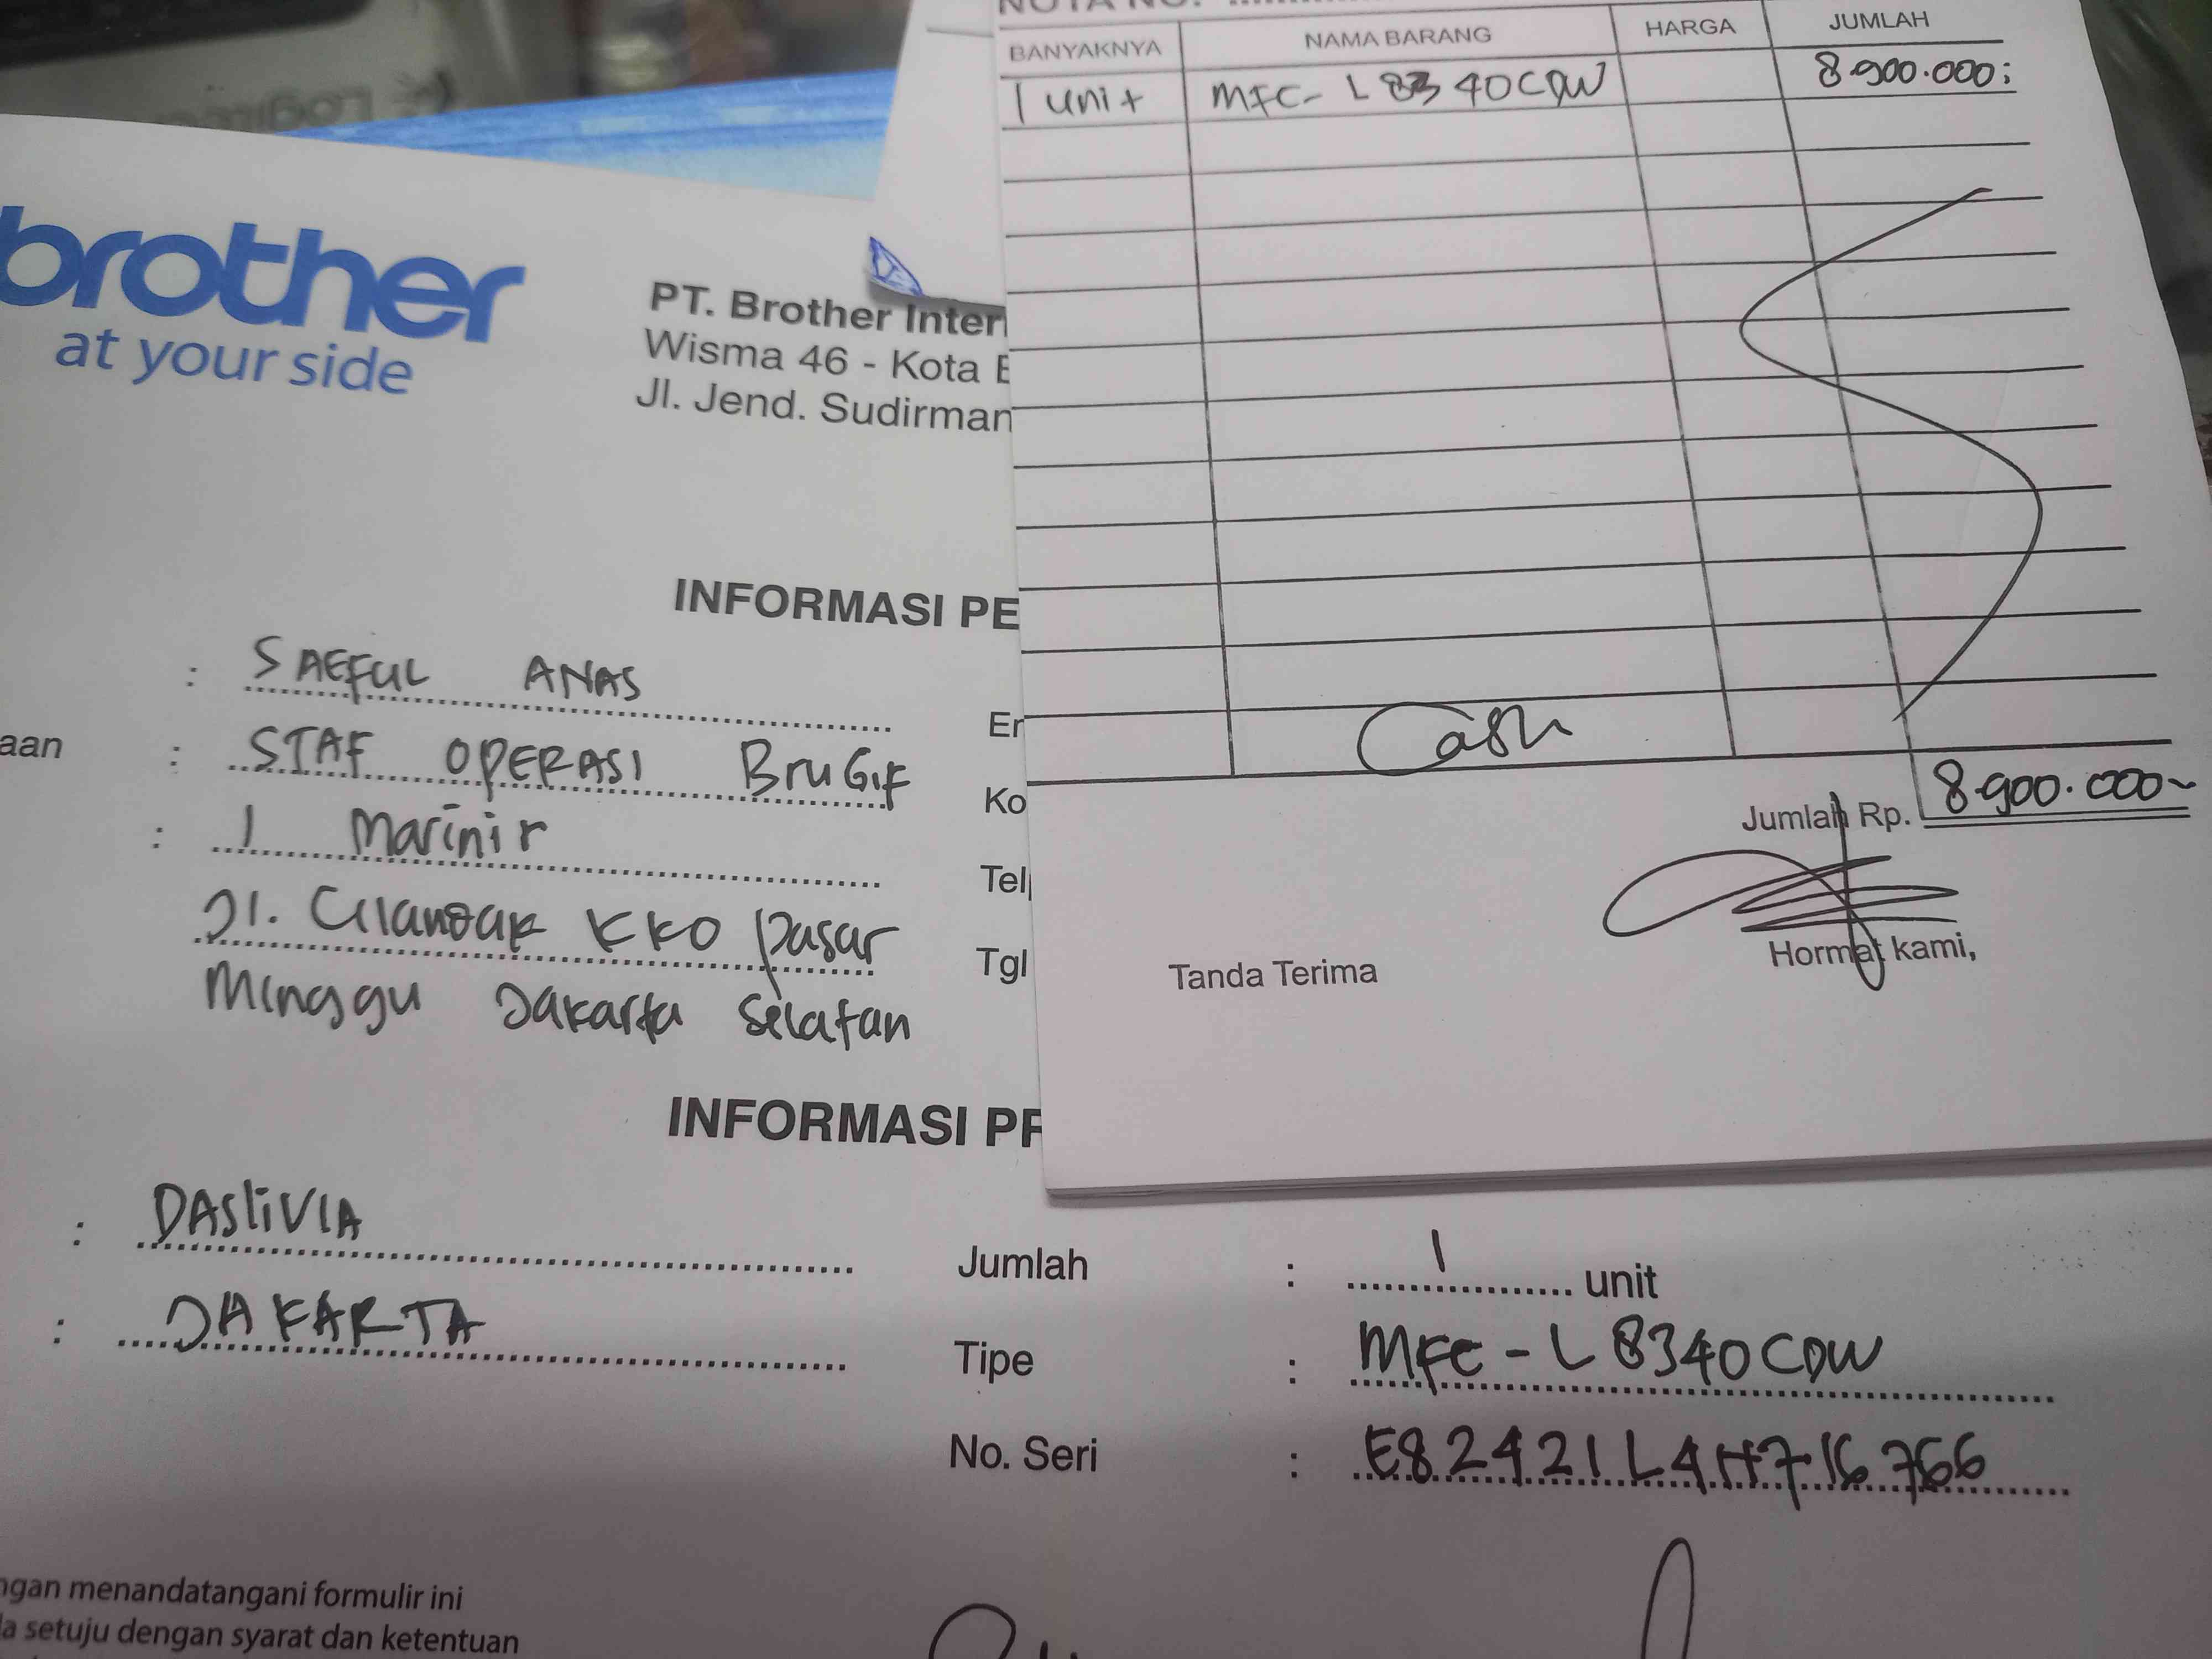 NOTA NO.
BANYAKNYA NAMA BARANG HARGA JUMLAH
1 unit MFC-L8340CDW 8.900.000
Cash
Jumlah Rp. 8.900.000
Tanda Terima Hormat kami,
brother
at your side
PT. Brother Inter
Wisma 46 - Kota B
Jl. Jend. Sudirman
INFORMASI PE
: SAEFUL ANAS
Er
aan : STAF OPERASI BruGif
Ko
: 1 Marinir
Tel
Jl. Cilandak KKO Pasar
Tgl
Minggu Jakarta Selatan
INFORMASI PR
: DASLIVIA
Jumlah : 1 unit
: JAKARTA
Tipe : MFC-L8340CDW
No. Seri : E82421L4H716766
ngan menandatangani formulir ini
la setuju dengan syarat dan ketentuan